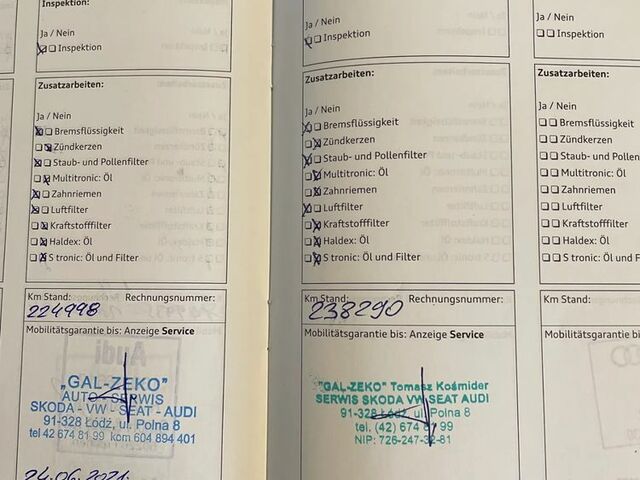 Inspektion:
Ja / Nein
Inspektion
Zusatzarbeiten:
Ja / Nein
Bremsflüssigkeit
Zündkerzen
Staub- und Pollenfilter
Multitronic: Öl
Zahnriemen
Luftfilter
Kraftstofffilter
Haldex: Öl
S tronic: Öl und Filter
Km Stand:
Rechnungsnummer:
224998
Mobilitätsgarantie bis: Anzeige Service
„GAL-ZEKO"
AUTO - SERWIS
SKODA - VW - SEAT - AUDI
91-328 Łódź, ul. Polna 8
tel 42 674 81 99 kom 604 894 401
24.06.2021
Ja / Nein
Inspektion
Zusatzarbeiten:
Ja / Nein
Bremsflüssigkeit
Zündkerzen
Staub- und Pollenfilter
Multitronic: Öl
Zahnriemen
Luftfilter
Kraftstofffilter
Haldex: Öl
S tronic: Öl und Filter
Km Stand:
Rechnungsnummer:
238290
Mobilitätsgarantie bis: Anzeige Service
"GAL-ZEKO" Tomasz Kośmider
SERWIS SKODA VW SEAT AUDI
91-328 Łódź, ul. Polna 8
tel. (42) 674 81 99
NIP: 726-247-32-81
Ja / Nein
Inspektion
Zusatzarbeiten:
Ja / Nein
Bremsflüssigkeit
Zündkerzen
Staub- und Pollenfilter
Multitronic: Öl
Zahnriemen
Luftfilter
Kraftstofffilter
Haldex: Öl
S tronic: Öl und Filter
Km Stand:
Mobilitätsgarantie bis: Anzeige